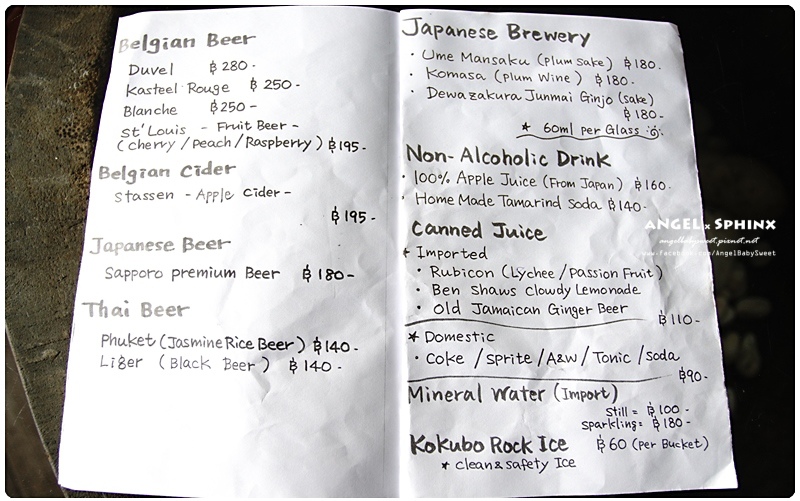 Belgian Beer
Duvel ฿280-
Kasteel Rouge ฿250-
Blanche ฿250-
St'Louis - Fruit Beer -
(cherry/peach/Raspberry) ฿195-
Belgian Cider
Stassen - Apple Cider -
฿195-
Japanese Beer
Sapporo premium Beer ฿180-
Thai Beer
Phuket (Jasmine Rice Beer) ฿140-
Liger (Black Beer) ฿140-
Japanese Brewery
· Ume Mansaku (Plum sake) ฿180-
· Komasa (Plum Wine) ฿180-
· Dewazakura Junmai Ginjo (sake)
฿180-
★ 60ml per Glass
Non-Alcoholic Drink
· 100% Apple Juice (From Japan) ฿160-
· Home Made Tamarind Soda ฿140-
Canned Juice
★ Imported
· Rubicon (Lychee/Passion Fruit)
· Ben Shaws Cloudy Lemonade
· Old Jamaican Ginger Beer
฿110-
★ Domestic
· Coke / Sprite / A&W / Tonic / Soda
฿90-
Mineral Water (Import)
Still = ฿100-
Sparkling = ฿180-
Kokubo Rock Ice ฿60 (Per Bucket)
★ clean & safety Ice
ANGEL x SPHINX
angelbabysweet.pixnet.net
www.facebook.com/AngelBabySweet